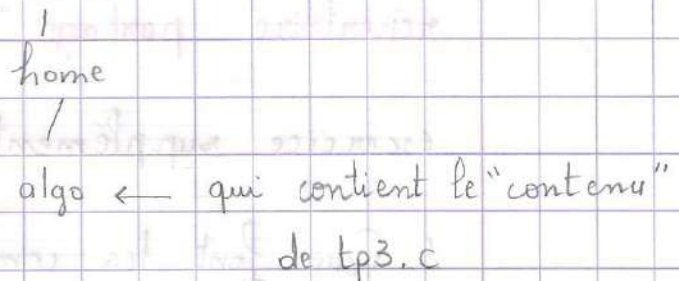 /
home
/
algo ← qui contient le "contenu"
de tp3.c